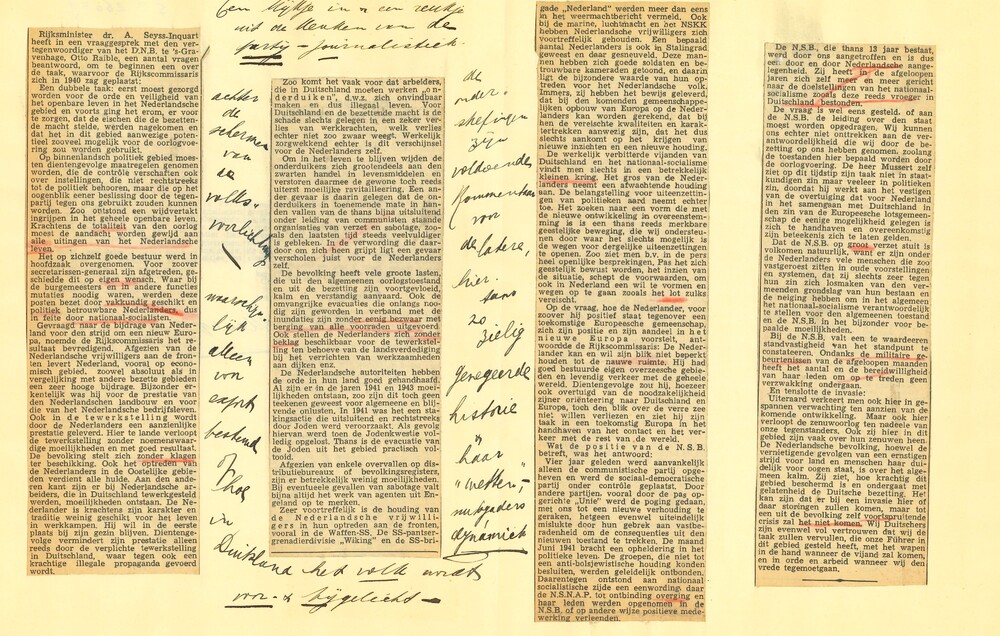 Een kijkje in & een reukje
uit de keuken van de
partij - journalistiek.
Rijksminister dr. A. Seyss-Inquart
heeft in een vraaggesprek met den ver-
tegenwoordiger van het D.N.B. te 's-Gra-
venhage, Otto Raible, een aantal vragen
beantwoord, om te beginnen een over
de taak, waarvoor de Rijkscommissaris
zich in 1940 zag geplaatst:
Een dubbele taak: eerst moest gezorgd
worden voor de orde en veiligheid van
het openbare leven in het Nederlandsche
gebied en voorts ging het erom, er voor
te zorgen, dat de eischen die de bezetten-
de macht stelde, werden nagekomen en
dat het in dit gebied aanwezige poten-
tieel zooveel mogelijk voor de oorlogvoe-
ring zou worden gebruikt.
Op binnenlandsch politiek gebied moes-
ten dientengevolge maatregelen genomen
worden, die de contrôle verschaften ook
over instellingen, die niet rechtstreeks
tot de politiek behooren, maar die op het
oogenblik eener beslissing door de tegen-
partij tegen ons gebruikt zouden kunnen
worden. Zoo ontstond een wijdvertakt
ingrijpen in het geheele openbare leven.
Krachtens de totaliteit van den oorlog
moest de aandacht worden gewijd aan
alle uitingen van het Nederlandsche
leven.
Het op zichzelf goede bestuur werd in
hoofdzaak overgenomen. Voor zoover
secretarissen-generaal zijn afgetreden, ge-
schiedde dit op eigen wensch. Waar bij
de burgemeesters en in andere functies
mutaties noodig waren, werden deze
posten bezet door vakkundig geschikte en
politiek betrouwbare Nederlanders, dus
in feite door nationaal-socialisten.
Gevraagd naar de bijdrage van Neder-
land voor den strijd om een nieuw Euro-
pa, noemde de Rijkscommissaris het re-
sultaat bevredigend. Afgezien van de
Nederlandsche vrijwilligers aan de fron-
ten levert Nederland, vooral op econo-
misch gebied, zoowel absoluut als in
vergelijking met andere bezette gebieden
een zeer hooge bijdrage. Bijzonder er-
kentelijk was hij voor de prestatie van
den Nederlandschen landbouw en voor
die van het Nederlandsche bedrijfsleven.
Ook in de tewerkstelling wordt
door de Nederlanders een aanzienlijke
prestatie geleverd. Hier te lande verloopt
de tewerkstelling zonder noemenswaar-
dige moeilijkheden en met goed resultaat.
De bevolking stelt zich zonder klagen
ter beschikking. Ook het optreden van
de Nederlanders in de Oostelijke gebie-
den verdient alle hulde. Aan den ande-
ren kant zijn er bij Nederlandsche ar-
beiders, die in Duitschland tewerkgesteld
werden, moeilijkheden ontstaan. De Ne-
derlander is krachtens zijn karakter en
traditie weinig geschikt voor het leven
in werkkampen. Hij wil in de eerste
plaats bij zijn gezin blijven. Dientenge-
volge vermindert zijn prestatie alleen
reeds door de verplichte tewerkstelling
in Duitschland, waar tegen ook een
krachtige illegale propaganda gevoerd
wordt.
achter
de
schermen
van
de
volks-
voorlichting
waarschijn-
lijk
alleen
voor
export
bestemd
Thoes
in
Duitsland het volk wordt
voor- & bijgelicht -
Zoo komt het vaak voor dat arbeiders,
die in Duitschland moeten werken „on-
derduiken", d.w.z. zich onvindbaar
maken en dus illegaal leven. Voor
Duitschland en de bezettende macht is de
schade slechts gelegen in een zeker ver-
lies van werkkrachten, welk verlies
echter niet zoo zwaar weegt. Werkelijk
zorgwekkend echter is dit verschijnsel
voor de Nederlanders zelf.
Om in het leven te blijven wijden de
onderduikers zich grootendeels aan den
zwarten handel in levensmiddelen en
verstoren daarmee de gewone toch reeds
uiterst moeilijke ravitailleering. Een an-
der gevaar is daarin gelegen dat de on-
derduikers in toenemende mate in han-
den vallen van de thans bijna uitsluitend
onder leiding van communisten staande
organisaties van verzet en sabotage, zoo-
als den laatsten tijd steeds veelvuldiger
is gebleken. In de verwording die daar-
door om zich heen grijpt ligt een gevaar
verscholen juist voor de Nederlanders
zelf.
De bevolking heeft vele groote lasten,
die uit den algemeenen oorlogstoestand
en uit de bezetting zijn voortgevloeid,
kalm en verstandig aanvaard. Ook de
omvangrijke evacuaties die onlangs noo-
dig zijn geworden in verband met de
inundaties zijn zonder eenig bezwaar met
berging van alle voorraden uitgevoerd.
Ook stellen de Nederlanders zich zonder
beklag beschikbaar voor de tewerkstel-
ling ten behoeve van de landsverdediging
bij het verrichten van werkzaamheden
aan dijken enz.
De Nederlandsche autoriteiten hebben
de orde in hun land goed gehandhaafd.
Al zijn er in de jaren 1941 en 1943 moei-
lijkheden ontstaan, zoo zijn dat toch geen
evenementen geweest voor algemeene en blij-
vende onlusten. In 1941 was het een sta-
kingsactie die uitsluitend en rechtstreeks
door Joden werd veroorzaakt. Als gevolg
hiervan werd toen de Jodenkwestie vol-
ledig opgelost. Thans is de evacuatie van
de Joden uit het gebied practisch vol-
tooid.
Afgezien van enkele overvallen op dis-
tributiebureaux of bevolkingsregisters,
zijn er betrekkelijk weinig moeilijkheden.
Bij eventueele gevallen van sabotage valt
bijna altijd het werk van agenten uit En-
geland op te merken.
Zeer voortreffelijk is de houding van
de Nederlandsche vrijwilli-
gers in hun optreden aan de fronten,
vooral in de Waffen-SS. De SS-panter-
grenadierdivisie „Wiking" en de SS-bri-
de
onder-
schriften
zijn
voldoende
kommentaar
voor
de latere,
hier
thans
zo
zielig
genegeerde
historie
in
haar
„wetten,-
mitsgaders
dynamiek
gade „Nederland" werden meer dan eens
in het weermachtbericht vermeld. Ook
bij de marine, luchtmacht en het NSKK
hebben Nederlandsche vrijwilligers zich
voortreffelijk gehouden. Een bepaald
aantal Nederlanders is ook in Stalingrad
geweest en daar gesneuveld. Deze man-
nen hebben zich goede soldaten en be-
trouwbare kameraden getoond, en daarin
ligt de bijzondere waarde van hun op-
treden voor het Nederlandsche volk.
Immers, zij hebben het bewijs geleverd,
dat bij den komenden gemeenschappe-
lijken opbouw van Europa op de Neder-
landers kan worden gerekend, dat bij
hen de vereischte kwaliteiten en karak-
tertrekken aanwezig zijn, dat het dus
slechts aankomt op het krijgen van
nieuwe inzichten en een nieuwe houding.
De werkelijk verbitterde vijanden van
Duitschland en het nationaal-socialisme
vindt men slechts in een betrekkelijk
kleinen kring. Het gros van de Neder-
landers neemt een afwachtende houding
aan. De belangstelling voor uiteenzettin-
gen van politieken aard neemt echter
toe. Het zoeken naar een vorm, die met
de nieuwe ontwikkeling in overeenstem-
ming is is een thans reeds merkbare
geestelijke beweging, die wij ondersteu-
nen door waar het slechts mogelijk is
de wegen voor dergelijke uiteenzettingen
te openen. Zoo ziet men b.v. in de pers
heel openlijke besprekingen. Pas het zich
geestelijk bewust worden, het inzien van
de situatie, schept de voorwaarden, om
ook in Nederland een wil te vormen en
wegen op te gaan zooals het lot zulks
vereischt.
Op de vraag, hoe de Nederlander, voor
zoover hij positief staat tegenover een
toekomstige Europeesche gemeenschap,
zich zijn positie en zijn aandeel in het
nieuwe Europa voorstelt, ant-
woordde de Rijkscommissaris: De Neder-
lander kan en wil zijn blik niet beperkt
houden tot de nauwe ruimte. Hij had
goed bestuurde eigen overzeesche gebie-
den en levendig verkeer met de geheele
wereld. Dientengevolge zou hij, hoezeer
ook overtuigd van de noodzakelijkheid
zijner oriënteering naar Duitschland en
Europa, toch den blik over de verre zee
niet willen verliezen en ziet hij zijn
taak in een toekomstig Europa in het
handhaven van het contact en het ver-
keer met de rest van de wereld.
Wat de positie van de N.S.B.
betreft, was het antwoord:
Vier jaar geleden werd aanvankelijk
alleen de communistische partij opge-
heven en werd de sociaal-democratische
partij onder contrôle geplaatst. Door
andere partijen, vooral door de pas op-
gerichte „Unie" werd de poging gedaan,
met ons tot een nieuwe verhouding te
geraken, hetgeen evenwel uiteindelijk
mislukte door hun gebrek aan vastbe-
radenheid om de consequenties uit den
nieuwen toestand te trekken. De maand
Juni 1941 bracht een opheldering in het
politieke leven. De groepen, die niet tot
een anti-bolsjewistische houding konden
besluiten, werden geleidelijk ontbonden.
Daarentegen ontstond aan nationaal
socialistische zijde een eenwording, daar
de N.S.N.A.P. tot ontbinding overging en
haar leden werden opgenomen in de
N.S.B. of op andere wijze positieve mede-
werking verleenden.
De N.S.B., die thans 13 jaar bestaat,
werd door ons aangetroffen en is dus
door en door Nederlandsche aange-
legenheid. Zij heeft in de afgeloopen
jaren zich zelf meer en meer gericht
naar de doelstellingen van het nationaal-
socialisme zooals deze reeds vroeger in
Duitschland bestonden.
De vraag is wel eens gesteld, of aan
de N.S.B. de leiding over den staat
moest worden opgedragen. Wij kunnen
ons echter niet onttrekken aan de ver-
antwoordelijkheid die wij door de be-
zetting op ons hebben genomen, zoolang
de toestanden hier bepaald worden door
de oorlogvoering. De heer Mussert zelf
ziet op dit tijdstip zijn taak niet in staat-
kundigen zin maar veeleer in politieken
zin, doordat hij werkt aan het vestigen
van de overtuiging dat voor Nederland
in het samengaan met Duitschland en
in den zin van de Europeesche lotsgemeen-
schap de eenige mogelijkheid gelegen is
zich te handhaven en overeenkomstig
zijn beteekenis zich te laten gelden.
Dat de N.S.B. op groot verzet stuit is
volkomen natuurlijk, want er zijn onder
de Nederlanders vele menschen die zoo
vastgeroest zitten in oude voorstellingen
en systemen, dat zij slechts zeer tegen
hun zin zich losmaken van den ver-
meenden grondslag van hun bestaan en
de neiging hebben om in het algemeen
het nationaal-socialisme verantwoordelijk
te stellen voor den algemeenen toestand en
de N.S.B. in het bijzonder voor be-
paalde moeilijkheden.
Bij de N.S.B. valt een te waardeeren
standvastigheid van het standpunt te
constateeren. Ondanks de militaire ge-
beurtenissen van de afgeloopen maanden
heeft het aantal en de bereidwilligheid
van haar leden om op te treden geen
verzwakking ondergaan.
En tenslotte de invasie:
Uiteraard verkeert men ook hier in ge-
spannen verwachting ten aanzien van de
komende ontwikkeling. Maar ook hier
verloopt de zenuwoorlog ten nadeele van
onze tegenstanders. Ook zij hier in dit
gebied zijn vaak over hun zenuwen heen.
De Nederlandsche bevolking, hoewel de
vernietigende gevolgen van een ernstigen
strijd voor land en menschen haar dui-
delijk voor oogen staat, is over het alge-
meen kalm. Zij ziet, hoe krachtig dit
gebied beschermd is en ondergaat met
gelatenheid de Duitsche bezetting. Het
kan zijn dat er bij een invasie hier of
daar storingen zullen komen, maar tot
een uit de bevolking zelf voortspruitende
crisis zal het niet komen. Wij Duitschers
zijn even wel vol vertrouwen dat wij de
taak zullen vervullen, die onze Führer in
dit gebied gesteld heeft, met het wapen
in de hand wanneer de vijand zal komen,
en in orde en arbeid wanneer wij den
vrede tegemoetgaan.